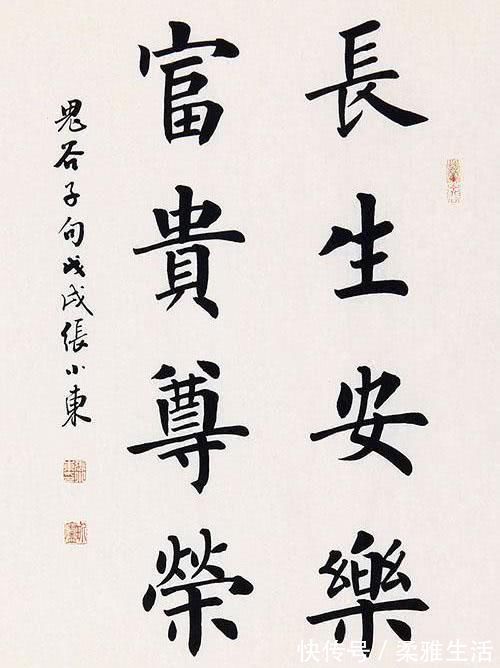 長生安樂
富貴尊榮
鬼谷子句戊戌張小東
快传号/柔雅生活